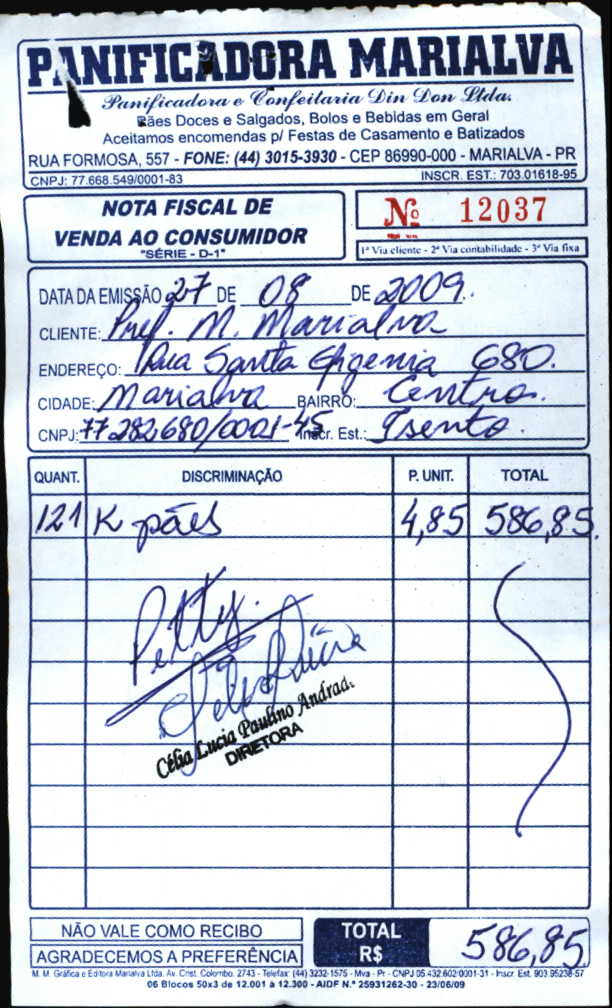 PANIFICADORA MARIALVA
Panificadora e Confeitaria Din Don Ltda.
Pães Doces e Salgados, Bolos e Bebidas em Geral
Aceitamos encomendas p/ Festas de Casamento e Batizados
RUA FORMOSA, 557 - FONE: (44) 3015-3930 - CEP 86990-000 - MARIALVA - PR
CNPJ: 77.668.549/0001-83 INSCR. EST.: 703.01618-95
NOTA FISCAL DE
VENDA AO CONSUMIDOR
"SÉRIE - D-1"
Nº 12037
1ª Via cliente - 2ª Via contabilidade - 3ª Via fixa
DATA DA EMISSÃO 27 DE 08 DE 2009.
CLIENTE: Pref. M. Marialva
ENDEREÇO: Rua Santa Efigenia 680.
CIDADE: Marialva BAIRRO: Centro.
CNPJ: 77282680/0001-45 Inscr. Est.: Isento.
QUANT. DISCRIMINAÇÃO P. UNIT. TOTAL
121 K pães 4,85 586,85
Petty.
Célia Lucia Paulino Andrade
DIRETORA
NÃO VALE COMO RECIBO
AGRADECEMOS A PREFERÊNCIA
TOTAL
R$ 586,85
M. M. Gráfica e Editora Marialva Ltda. Av. Crist. Colombo, 2743 - Telefax: (44) 3232-1575 - Mva - Pr - CNPJ 05.432.602/0001-31 - Inscr. Est. 903.95238-57
06 Blocos 50x3 de 12.001 à 12.300 - AIDF N.º 25931262-30 - 23/06/09